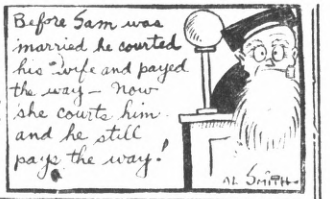 Before Sam was
married he courted
his wife and payed
the way - Now
she courts him
and he still
pays the way!
AL SMITH